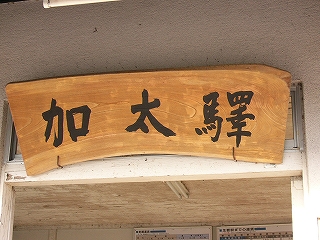 加太驛